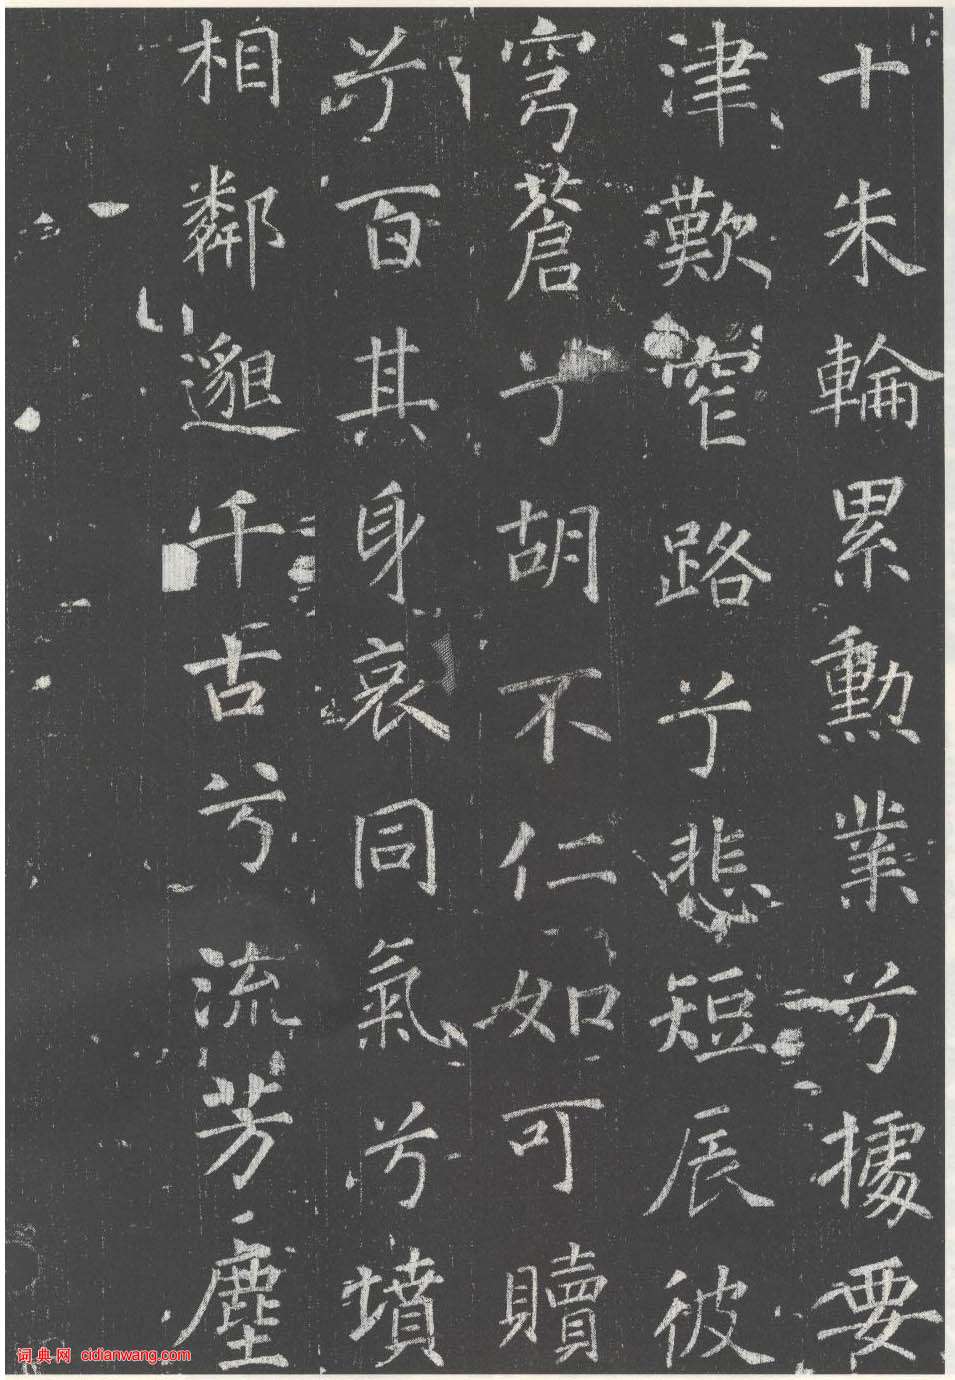 十朱輪累勲業兮據要
津歎窄路兮悲短辰彼
穹蒼兮胡不仁如可贖
兮百其身哀同氣兮墳
相鄰邈千古兮流芳塵
词典网 cidianwang.com